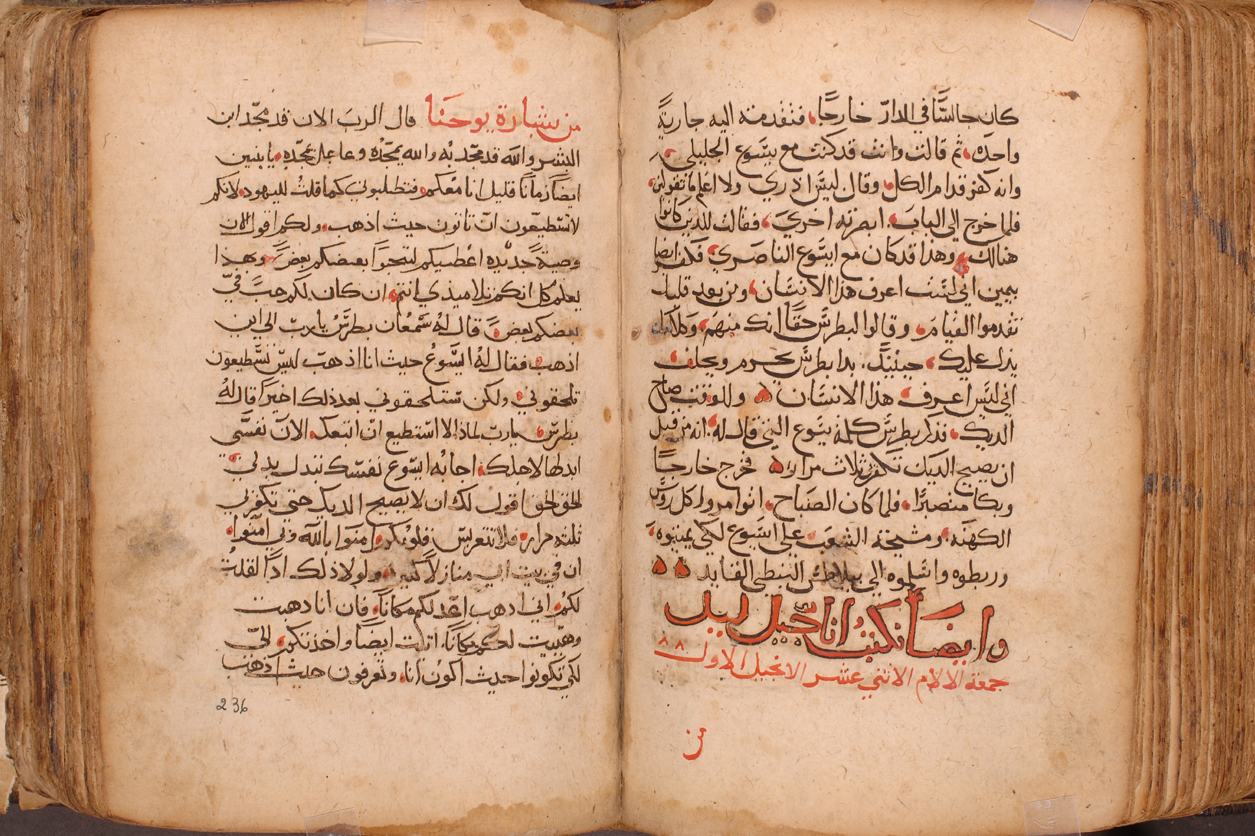 كان جالسًا في الدار خارجًا، فتقدمت اليه جارية
واحدة، ثم قالت وانت قد كنت مع يسوع الجليلي،
وانه كفر قدام الكل، وقال ليس ادري ولا اعلم ما تقولين،
فلما خرج الي الباب، ابصرته اخري، فقالت للذين كانوا
هنالك، وهذا قد كان مع ايسوع الناصري، فكفر ايضا
بيمين اني لست اعرف هذا الانسان، ومن بعد قليل
تقدموا القيام، وقالوا لبطرس حقًا انك منهم، وكلامك
يدل عليك، حينيذٍ، بدا بطرس يحرم ويحلف،
اني ليس اعرف هذا الانسان ۵ وللوقت صاح
الديك، فذكر بطرس كلمة يسوع التي قال له، انه من قبل
ان يصيح الديك تكفر بي ثلاث مرار ۵ فخرج خارجًا
وبكا متصبرًا، فلما كان الصباح، اتوامروا كل روس
الكهنة، ومشيخة الشعب، علي ايسوع لكي يميتوه،
وربطوه واسلموه الي بيلاطس البنطي القايد ۵ ۵
وايضًا نكتب اناجيل ليل
جمعة الالام الاثني عشر الانجيل الاول
من
من بشارة يوحنا قال الرب الان قد مجد ابن
البشر والله قد مجد به والله يمجده وعاجل يمجده، يا بنين
ايضًا زمانًا قليل انا معكم، فتطلبوني كما قلت لليهود، لانكم
لا تستطيعون ان تاتون حيث اذهب، ولكم اقول الان
وصية جديده اعطيكم لتحبوا بعضكم بعض، وبهذا
يعلم كل انكم تلاميذي انتم، ان كان لكم حب في
بعضكم بعض، قال له شمعان بطرس يا رب الي اين
اذهب، فقال له ايسوع حيث انا اذهب ليس تستطيعون
تلحقوني، ولكن ستلحقوني بعد ذلك اخيرًا قال له
بطرس، يا رب لماذا لا استطيع ان اتبعك، الان نفسي
ابدلها لاجلك، اجابه ايسوع نفسك تبدل بدلي،
الحق الحق اقول لك ان لا يصيح الديك حتي تكفر بي
ثلثه مرار، فلا تتعرس قلوبكم، امنوا بالله وبي امنوا،
ان في بيت ابي منازلًا كثيره، ولولا ذلك اذًا لقلت
لكم، اني اذهب اعد لكم مكانًا، فان انا ذهبت
وهييت لكم مكانًا، اتيت ايضًا واخذتكم، اليّ
لكي تكونوا حيث اكون انا، وتعرفون حيث اذهب
236